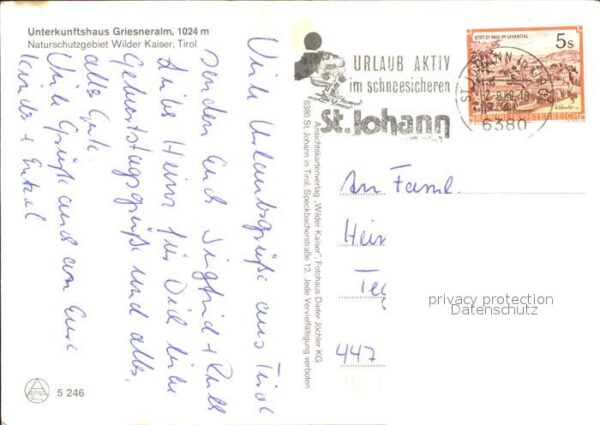 Unterkunftshaus Griesneralm, 1024 m
Naturschutzgebiet Wilder Kaiser, Tirol
Viele Urlaubsgrüße aus Tirol
senden Euch Siegfried + Ruth
Liebe Heinz für Dich liebe
Geburtstagsgrüße und alles,
alles Gute.
Viele Grüße auch von Eure
Kinder + Enkel
5 246
Ansichtskartenverlag „Wilder Kaiser", Fotohaus Dieter Jöchler KG
6380 St. Johann in Tirol, Speckbacherstraße 12. Jede Vervielfältigung verboten
URLAUB AKTIV
im schneesicheren
St. Johann
STIFT ST. PAUL IM LAVANTTAL
5 S
REPUBLIK ÖSTERREICH
ST. JOHANN
6380
An Famil.
Hein
Te
447
privacy protection
Datenschutz